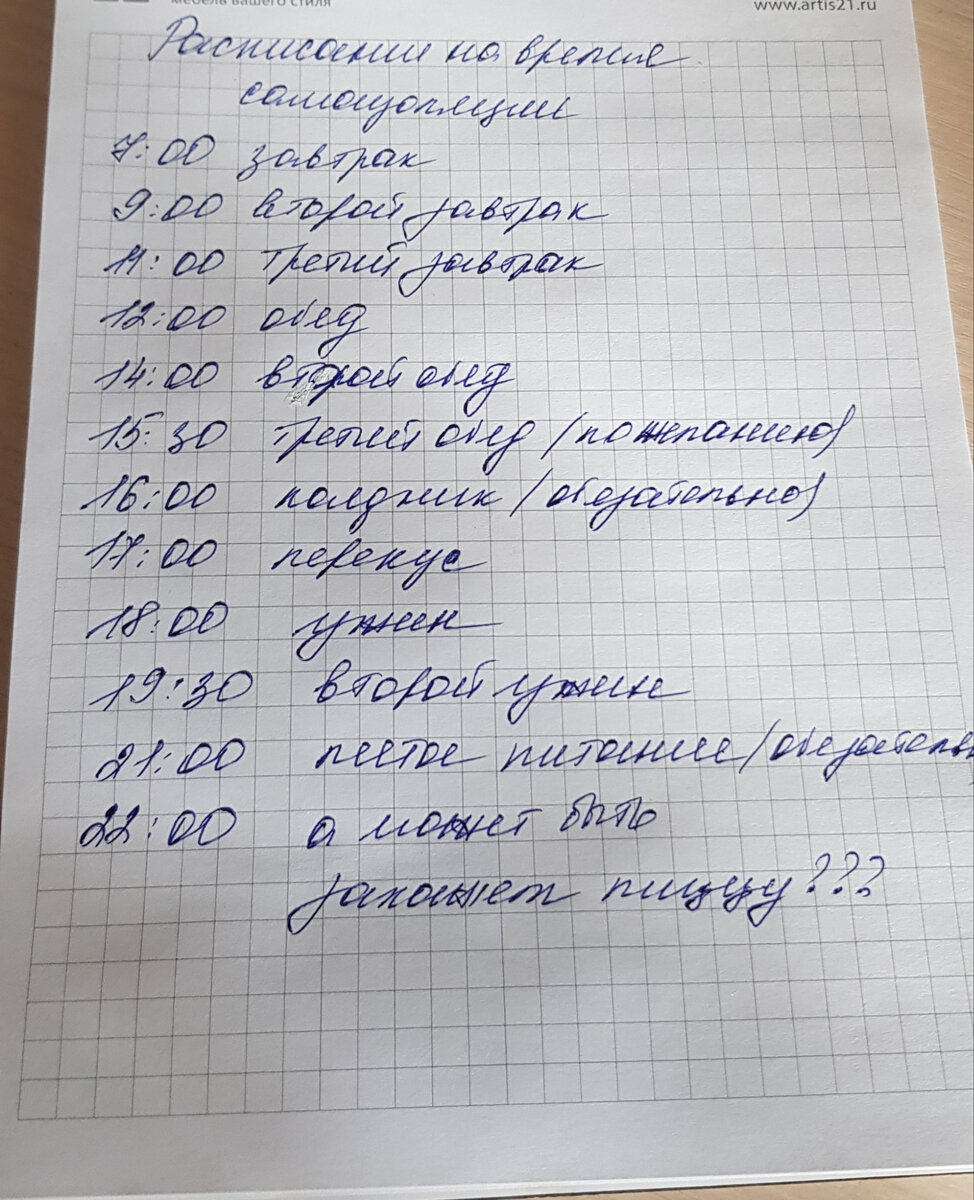 мебель вашего стиля
www.artis21.ru
Расписание на время
самоизоляции
7:00 завтрак
9:00 второй завтрак
11:00 третий завтрак
12:00 обед
14:00 второй обед
15:30 третий обед (по желанию)
16:00 полдник (обязательно)
17:00 перекус
18:00 ужин
19:30 второй ужин
21:00 питание (обязательн
22:00 а может быть
закажем пиццу???